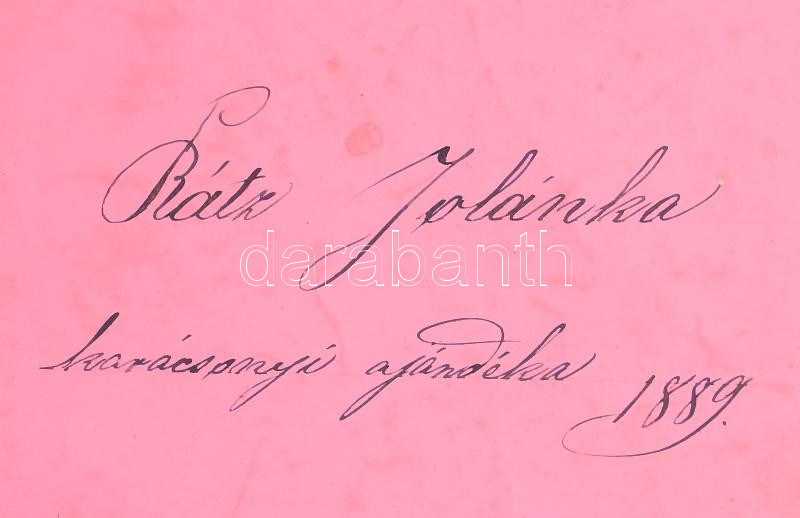 Rátz Jolánka
darabanth
karácsonyi ajándéka 1889.